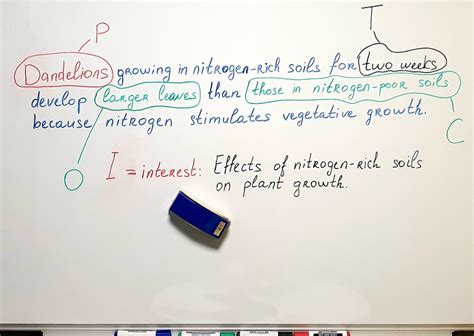 P
T
Dandelions growing in nitrogen-rich soils for two weeks
develop larger leaves than those in nitrogen-poor soils
because nitrogen stimulates vegetative growth.
C
O
I = interest: Effects of nitrogen-rich soils
on plant growth.